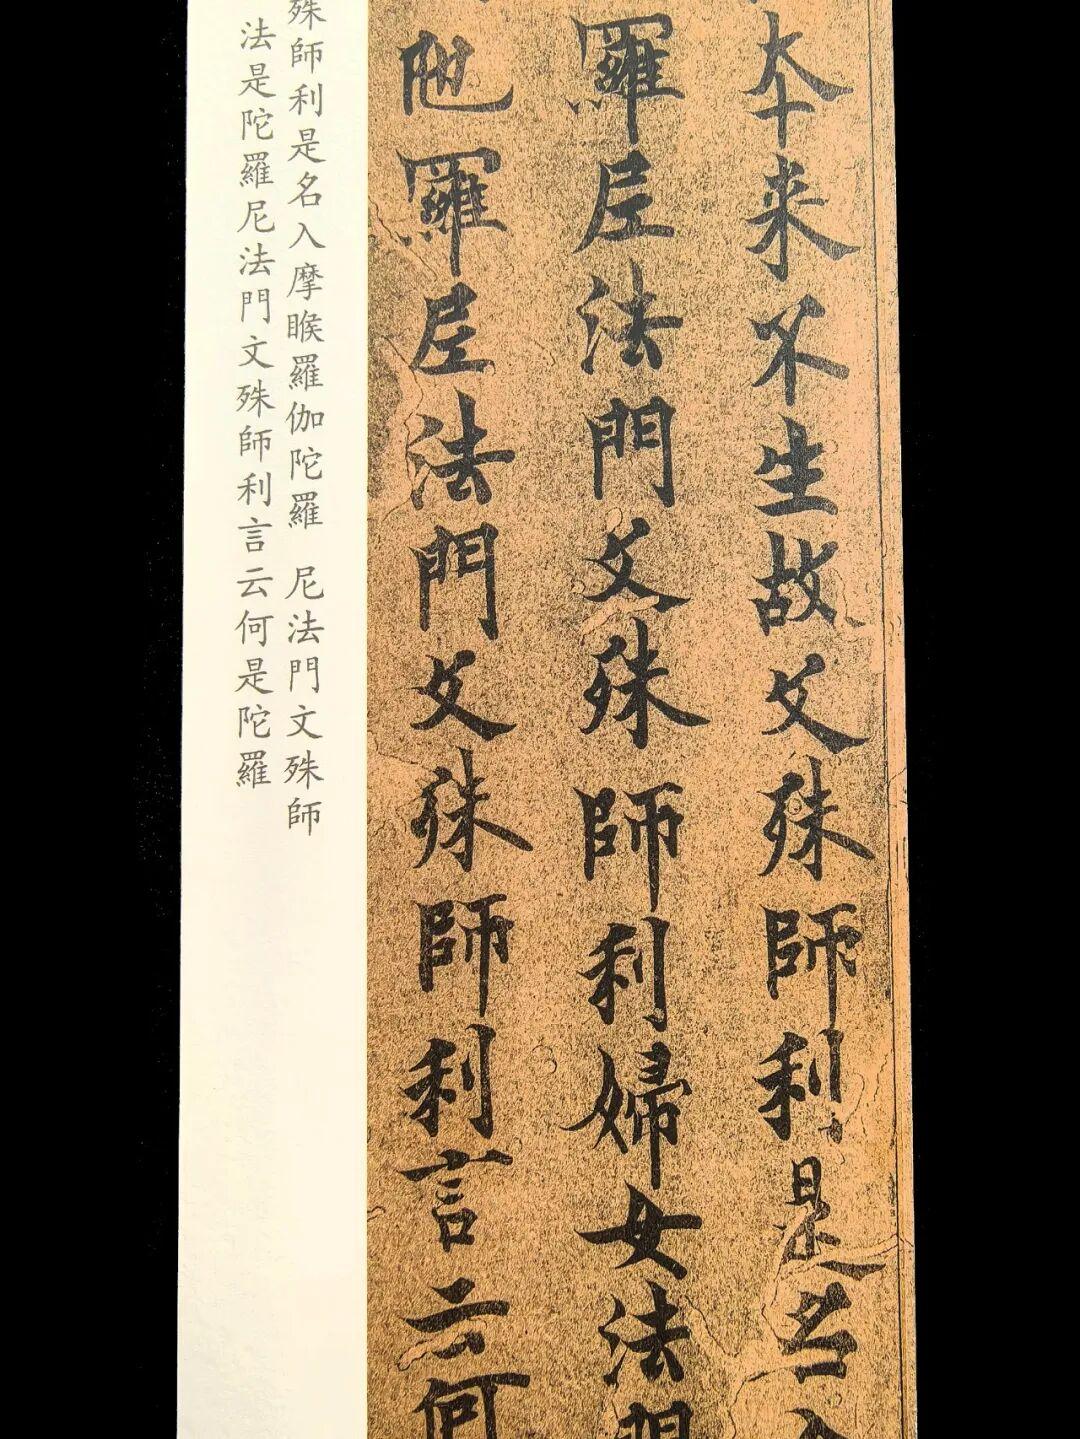 本来不生故文殊師利是名
羅尼法門文殊師利婦女法門
陁羅尼法門文殊師利言云何
殊師利是名入摩睺羅伽陀羅 尼法門文殊師
法是陀羅尼法門文殊師利言云何是陀羅